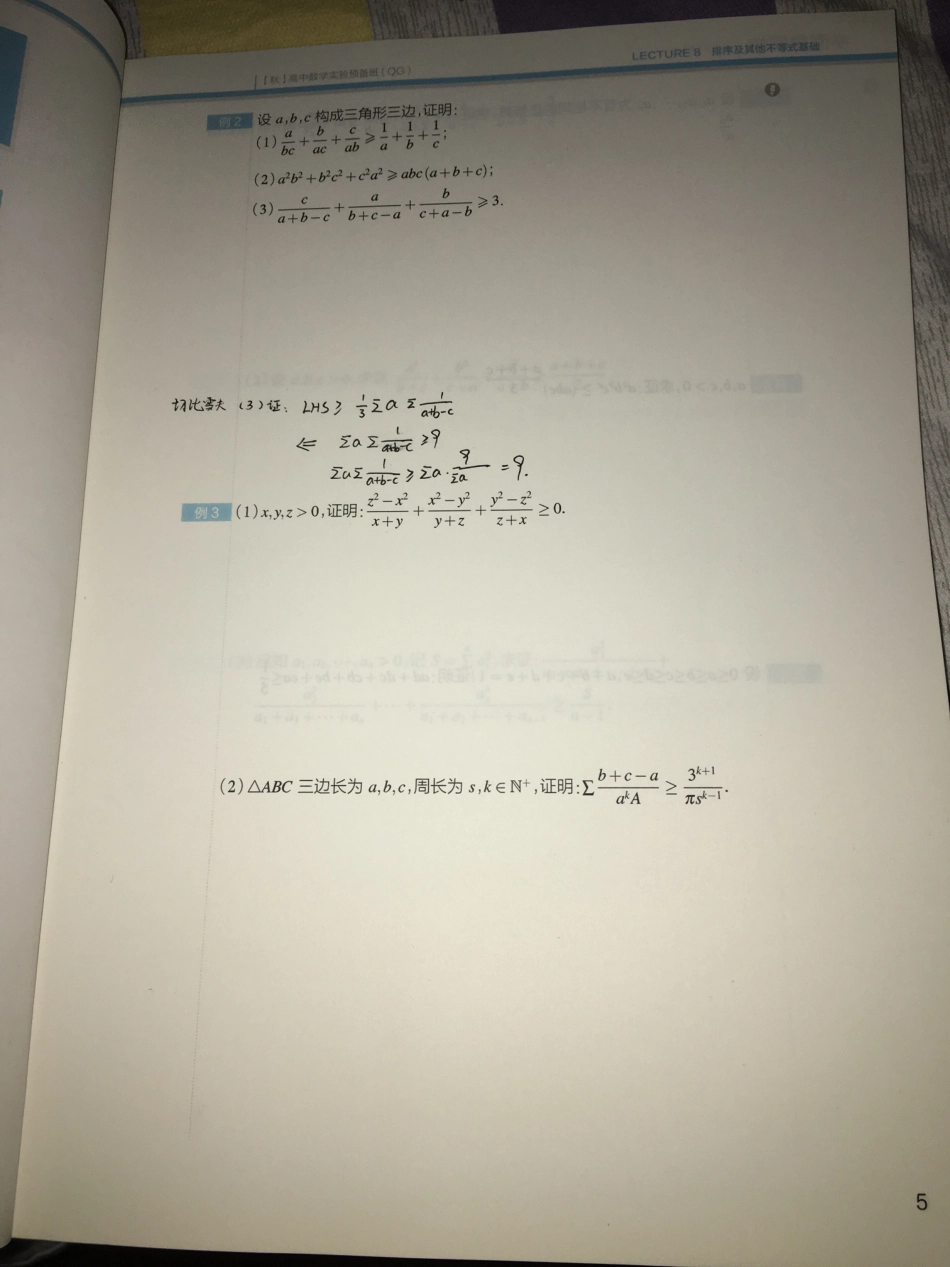 【秋】高中数学实验预备班(QG)
LECTURE 8 排序及其他不等式基础
例2 设 a,b,c 构成三角形三边,证明:
(1) a/bc + b/ac + c/ab ≥ 1/a + 1/b + 1/c;
(2) a²b²+b²c²+c²a² ≥ abc(a+b+c);
(3) c/(a+b−c) + a/(b+c−a) + b/(c+a−b) ≥ 3.
切比雪夫 (3)证: LHS ≥ 1/3 Σa Σ 1/(a+b-c)
⇐ Σa Σ 1/(a+b-c) ≥ 9
Σa Σ 1/(a+b-c) ≥ Σa · 9/Σa = 9.
例3 (1) x,y,z>0,证明: (z²−x²)/(x+y) + (x²−y²)/(y+z) + (y²−z²)/(z+x) ≥ 0.
(2) △ABC 三边长为 a,b,c,周长为 s,k∈ℕ⁺,证明: Σ (b+c−a)/(aᵏA) ≥ 3ᵏ⁺¹/(πsᵏ⁻¹).
5